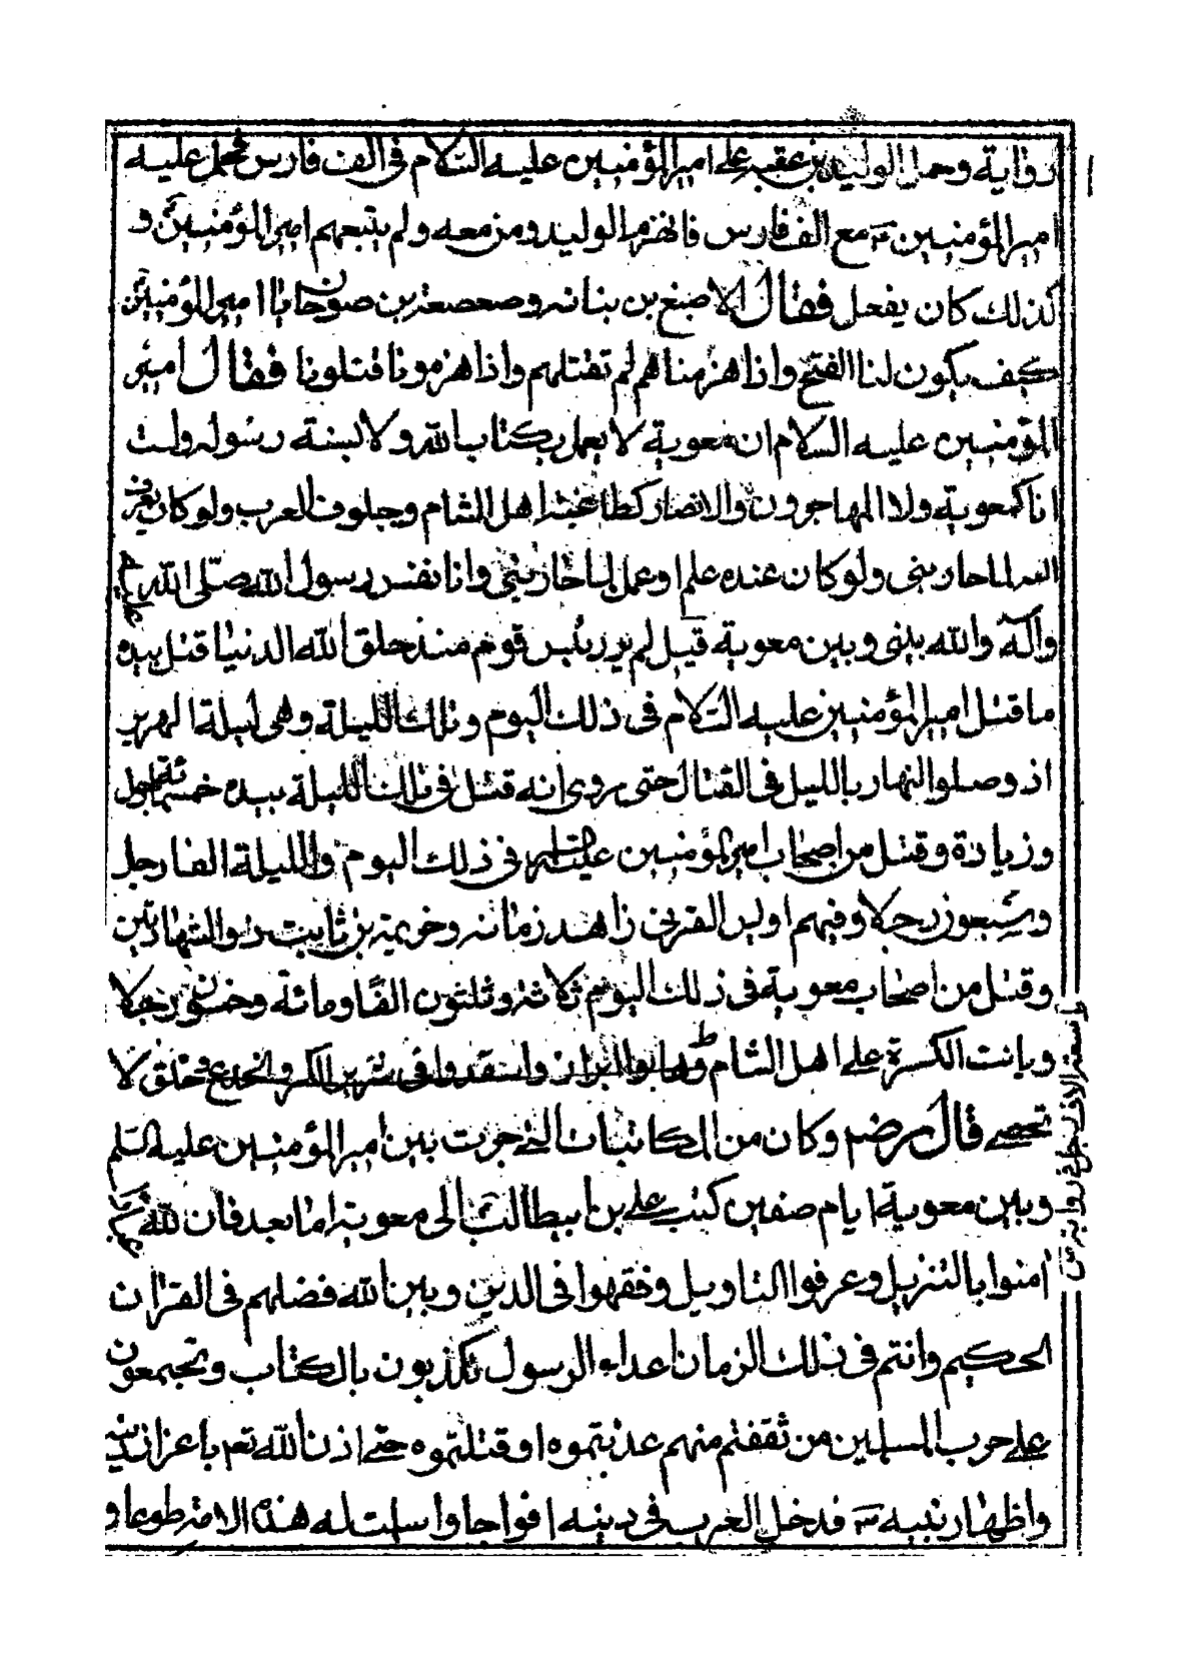 رواية وحمل الوليد بن عقبة على امير المؤمنين عليه السلام فى الف فارس فحمل عليه
امير المؤمنين ع مع الف فارس فانهزم الوليد ومن معه ولم يتبعهم امير المؤمنين ع و
كذلك كان يفعل فقال الاصبغ بن بنانه وصعصعة بن صوحان يا امير المؤمنين
كيف يكون لنا الفتح واذا هزمناهم لم تقتلهم واذا هزمونا قتلونا فقال امير
المؤمنين عليه السلام ان معوية لا يعمل بكتاب الله ولا بسنة رسوله ولست
انا كمعوية ولا المهاجرون والانصار كطاغية اهل الشام وجلوف العرب ولو كان يعرف
الله لما حاربنى ولو كان عنده علم او عمل لما حاربنى وانا نفس رسول الله صلى الله عليه
وآله والله بينى وبين معوية قيل لم ير رئيس قوم منذ خلق الله الدنيا قتل بيده
ما قتل امير المؤمنين عليه السلام فى ذلك اليوم وتلك الليلة وهى ليلة الهرير
اذ وصلوا النهار بالليل فى القتال حتى روى انه قتل فى تلك الليلة بيده خمسمائة رجل
وزيادة وقتل من اصحاب امير المؤمنين عليه السلام فى ذلك اليوم والليلة الفا رجل
وسبعون رجلا وفيهم اويس القرنى زاهد زمانه وخزيمة بن ثابت ذو الشهادتين
وقتل من اصحاب معوية فى ذلك اليوم ثلاثة وثلثون الفا ومائة وخمسون رجلا
وبانت الكسرة على اهل الشام وهابوا البراز واستقدوا فى شرين المكر والخدع فى خلق لا
تحصى قال مرض وكان من المكاتبات التى جرت بين امير المؤمنين عليه السلم
وبين معوية ايام صفين كتب على بن ابيطالب الى معوية اما بعد فان لله
امنوا بالتنزيل وعرفوا التاويل وفقهوا فى الدين وبين الله فضلهم فى القران
الحكيم وانتم فى ذلك الزمان اعداء الرسول تكذبون بالكتاب وتجمعون
على حرب المسلمين من ثقفتم منهم عذبتموه او قتلتموه حتى اذن الله تع باعزاز دينه
واظهار نبيه ص فدخل العرب فى دينه افواجا واسلمت له هذه الامة طوعا و